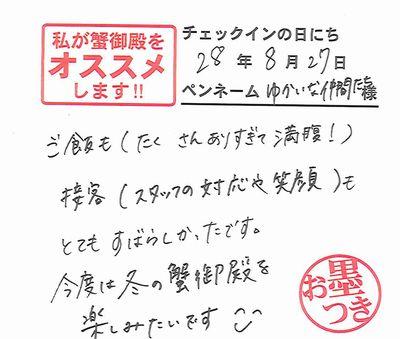 私が蟹御殿を
オススメ
します!!
チェックインの日にち
28年8月27日
ペンネーム ゆかいな仲間たち様
ご飯も(たくさんありすぎて満腹!)
接客(スタッフの対応や笑顔)も
とてもすばらしかったです。
今度は冬の蟹御殿を
楽しみたいです
お墨つき